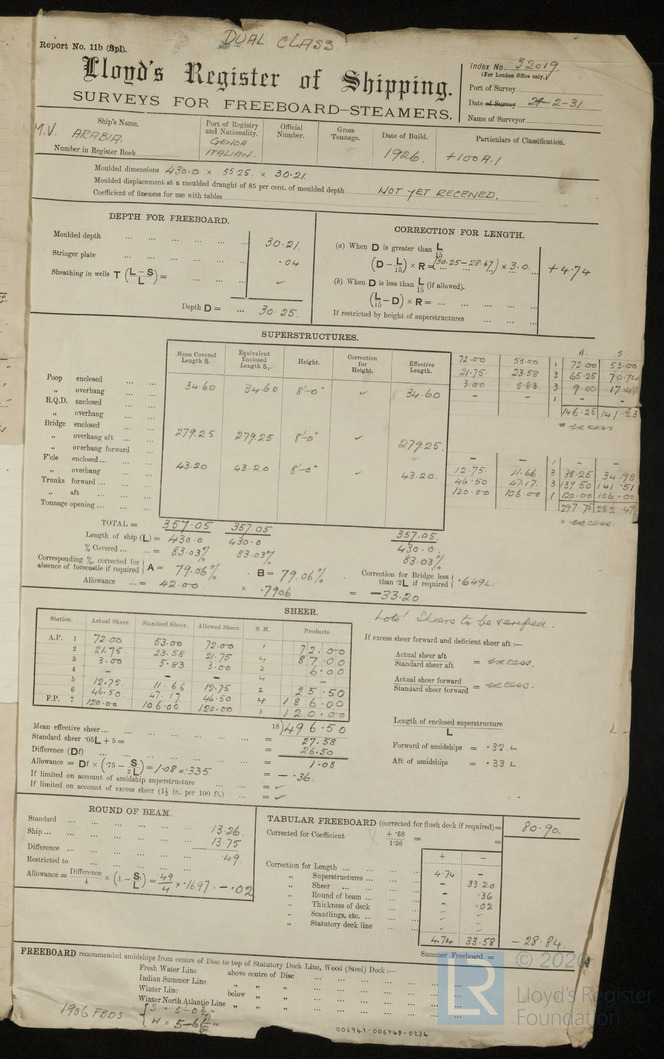 DUAL CLASS
Report No. 11b (Spl).
Lloyd's Register of Shipping.
SURVEYS FOR FREEBOARD—STEAMERS.
Index No. 32019
(For London Office only.)
Port of Survey
Date of Survey 24-2-31.
Name of Surveyor
Ship's Name. Port of Registry and Nationality. Official Number. Gross Tonnage. Date of Build. Particulars of Classification.
M.V. ARABIA. GENOA ITALIAN. 1926. +100A.1
Number in Register Book
Moulded dimensions 430.0 × 55.25 × 30.21
Moulded displacement at a moulded draught of 85 per cent. of moulded depth NOT YET RECEIVED.
Coefficient of fineness for use with tables
DEPTH FOR FREEBOARD.
Moulded depth 30.21
Stringer plate .04
Sheathing in wells T (L-S/L) = ✓
Depth D = 30.25
CORRECTION FOR LENGTH.
(a) When D is greater than L/15
(D - L/15) × R = (30.25-28.67) × 3.0 +4.74
(b) When D is less than L/15 (if allowed).
(L/15 - D) × R =
If restricted by height of superstructures
SUPERSTRUCTURES.
Mean Covered Length S. Equivalent Enclosed Length S₁. Height. Correction for Height. Effective Length.
Poop enclosed 34.60 34.60 8'-0" ✓ 34.60
„ overhang
R.Q.D. enclosed
„ overhang
Bridge enclosed 279.25 279.25 8'-0" ✓ 279.25
„ overhang aft
„ overhang forward
F'cle enclosed 43.20 43.20 8'-0" ✓ 43.20
„ overhang
Trunks forward
„ aft
Tonnage opening
A. S
72.00 53.00 1 72.00 53.00
21.75 23.58 3 65.25 70.74
3.00 5.83 3 9.00 17.49
- - 1 - -
146.25 141.23
= excess
- - 1 - -
12.75 11.66 3 38.25 34.98
46.50 47.17 3 139.50 141.51
120.00 106.00 1 120.00 106.00
297.75 282.49
= excess.
TOTAL = 357.05 357.05 357.05
Length of ship (L) = 430.0 430.0 430.0
% Covered = 83.03% 83.03% 83.03%
Corresponding %, corrected for absence of forecastle if required A = 79.06% B = 79.06% Correction for Bridge less than .2L if required .649L
Allowance = 42.00 × .7906 = -33.20
SHEER.
Station. Actual Sheer. Standard Sheer. Allowed Sheer. S. M. Products
A.P. 1 72.00 53.00 72.00 1 72.00
2 21.75 23.58 21.75 4 87.00
3 3.00 5.83 3.00 2 6.00
4 - - - 4 -
5 12.75 11.66 12.75 2 25.50
6 46.50 47.17 46.50 4 186.00
F.P. 7 120.00 106.00 120.00 1 120.00
Mean effective sheer 18) 496.50
= 27.58
Standard sheer .05L + 5 = 26.50
Difference (Df) = 1.08
Allowance = Df × (.75 - S/2L) = 1.08 × .335 = -.36.
If limited on account of amidship superstructure = ✓
If limited on account of excess sheer (1½ in. per 100 ft.) = ✓
Sheers to be verified.
If excess sheer forward and deficient sheer aft :—
Actual sheer aft / Standard sheer aft = excess.
Actual sheer forward / Standard sheer forward = excess.
Length of enclosed superstructure / L
Forward of amidships = .32 L
Aft of amidships = .33 L
ROUND OF BEAM.
Standard 13.26
Ship 13.75
Difference .49
Restricted to
Allowance = Difference/4 × (1 - S₁/L) = .49/4 × .1697 = -.02
TABULAR FREEBOARD (corrected for flush deck if required) = 80.90.
Corrected for Coefficient + .68 / 1.36 =
+ -
Correction for Length 4.74 -
„ Superstructures - 33.20
„ Sheer - .36
„ Round of beam - .02
„ Thickness of deck
„ Scantlings, etc.
„ Statutory deck line
4.74 33.58 -28.84
Summer Freeboard =
FREEBOARD recommended amidships from centre of Disc to top of Statutory Deck Line, Wood (Steel) Deck :—
Fresh Water Line above centre of Disc
Indian Summer Line „ „
Winter Line below „ „
Winter North Atlantic Line „ „
1906 FBDS { S = 5-0½"
W = 5-6½"
006741-006749-0234
LR
Lloyd's Register
Foundation